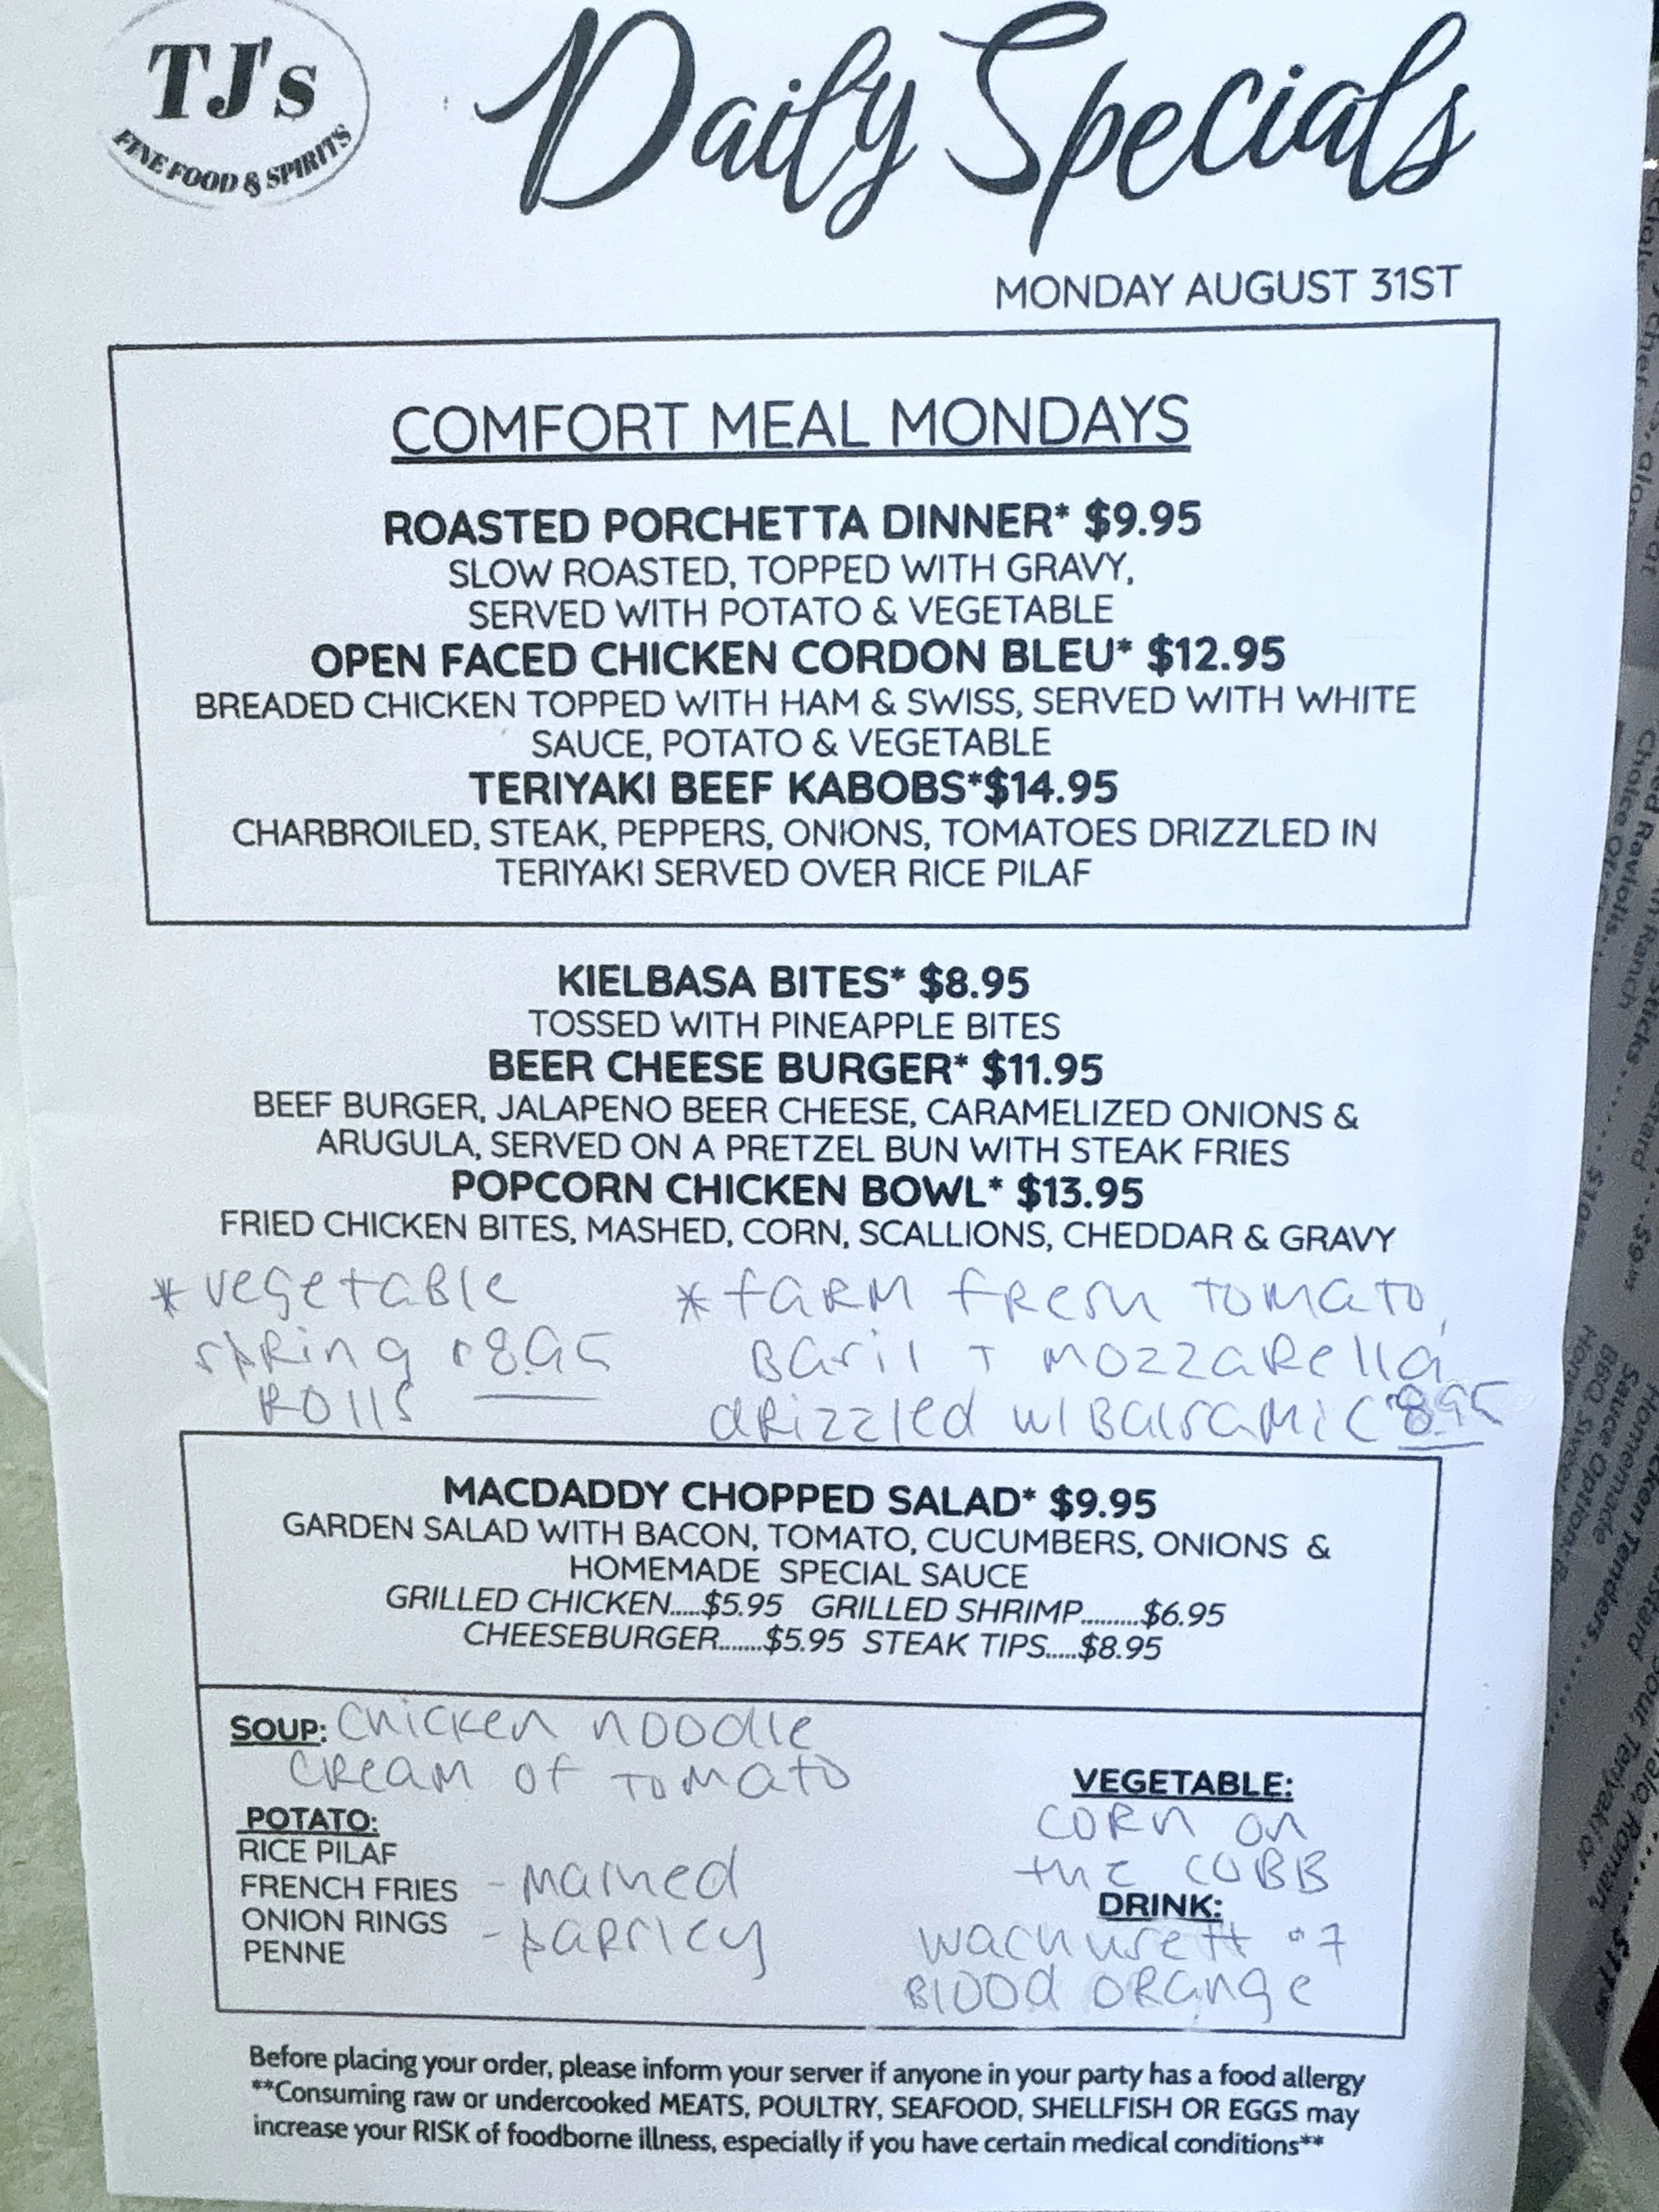 TJ's
FINE FOOD & SPIRITS
Daily Specials
MONDAY AUGUST 31ST
COMFORT MEAL MONDAYS
ROASTED PORCHETTA DINNER* $9.95
SLOW ROASTED, TOPPED WITH GRAVY,
SERVED WITH POTATO & VEGETABLE
OPEN FACED CHICKEN CORDON BLEU* $12.95
BREADED CHICKEN TOPPED WITH HAM & SWISS, SERVED WITH WHITE
SAUCE, POTATO & VEGETABLE
TERIYAKI BEEF KABOBS*$14.95
CHARBROILED, STEAK, PEPPERS, ONIONS, TOMATOES DRIZZLED IN
TERIYAKI SERVED OVER RICE PILAF
KIELBASA BITES* $8.95
TOSSED WITH PINEAPPLE BITES
BEER CHEESE BURGER* $11.95
BEEF BURGER, JALAPENO BEER CHEESE, CARAMELIZED ONIONS &
ARUGULA, SERVED ON A PRETZEL BUN WITH STEAK FRIES
POPCORN CHICKEN BOWL* $13.95
FRIED CHICKEN BITES, MASHED, CORN, SCALLIONS, CHEDDAR & GRAVY
* vegetaBle
spRing 8.95
ROllS
* faRM fResh tomato,
Basil + mozzaRella
dRizzled w/ BalsaMic 8.95
MACDADDY CHOPPED SALAD* $9.95
GARDEN SALAD WITH BACON, TOMATO, CUCUMBERS, ONIONS &
HOMEMADE SPECIAL SAUCE
GRILLED CHICKEN.....$5.95 GRILLED SHRIMP.........$6.95
CHEESEBURGER.......$5.95 STEAK TIPS.....$8.95
SOUP: Chicken noodle
CReaM of Tomato
POTATO:
RICE PILAF
FRENCH FRIES
ONION RINGS
PENNE
- Mashed
- paRsley
VEGETABLE:
CORn on
the COBB
DRINK:
wachusett
Blood ORange
Before placing your order, please inform your server if anyone in your party has a food allergy
**Consuming raw or undercooked MEATS, POULTRY, SEAFOOD, SHELLFISH OR EGGS may
increase your RISK of foodborne illness, especially if you have certain medical conditions**